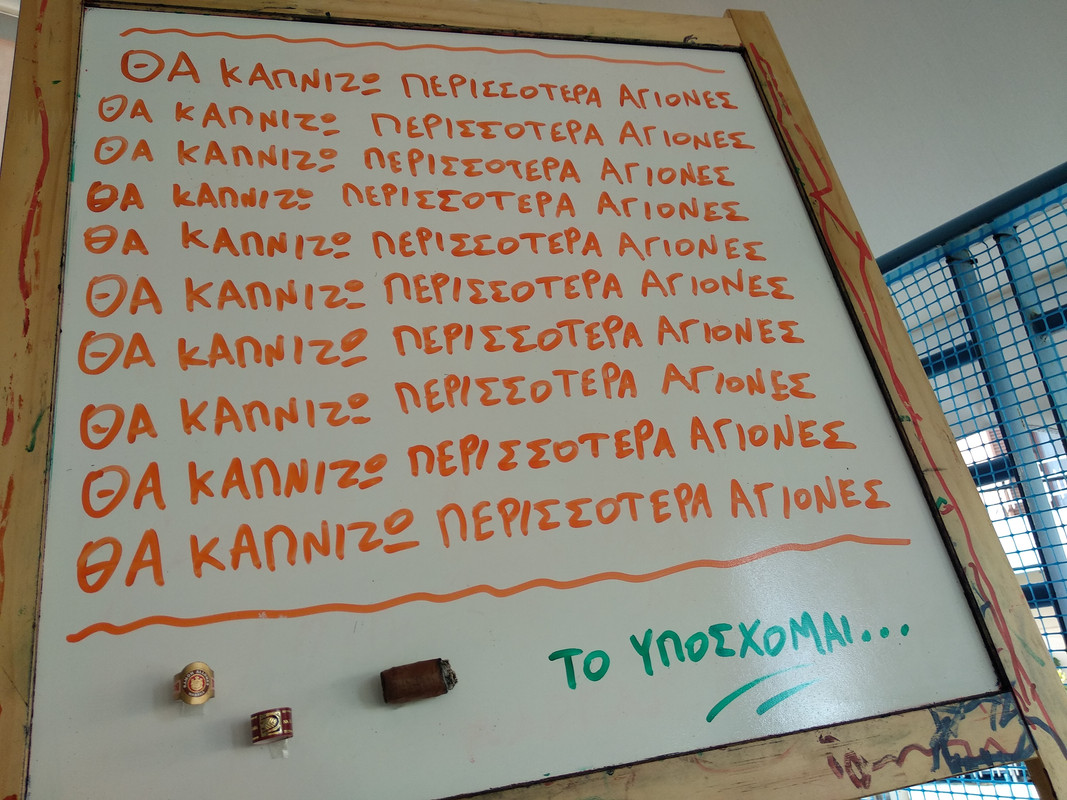 ΘΑ ΚΑΠΝΙΖΩ ΠΕΡΙΣΣΟΤΕΡΑ ΑΓΙΟΝΕΣ
ΘΑ ΚΑΠΝΙΖΩ ΠΕΡΙΣΣΟΤΕΡΑ ΑΓΙΟΝΕΣ
ΘΑ ΚΑΠΝΙΖΩ ΠΕΡΙΣΣΟΤΕΡΑ ΑΓΙΟΝΕΣ
ΘΑ ΚΑΠΝΙΖΩ ΠΕΡΙΣΣΟΤΕΡΑ ΑΓΙΟΝΕΣ
ΘΑ ΚΑΠΝΙΖΩ ΠΕΡΙΣΣΟΤΕΡΑ ΑΓΙΟΝΕΣ
ΘΑ ΚΑΠΝΙΖΩ ΠΕΡΙΣΣΟΤΕΡΑ ΑΓΙΟΝΕΣ
ΘΑ ΚΑΠΝΙΖΩ ΠΕΡΙΣΣΟΤΕΡΑ ΑΓΙΟΝΕΣ
ΘΑ ΚΑΠΝΙΖΩ ΠΕΡΙΣΣΟΤΕΡΑ ΑΓΙΟΝΕΣ
ΘΑ ΚΑΠΝΙΖΩ ΠΕΡΙΣΣΟΤΕΡΑ ΑΓΙΟΝΕΣ
ΘΑ ΚΑΠΝΙΖΩ ΠΕΡΙΣΣΟΤΕΡΑ ΑΓΙΟΝΕΣ
ΤΟ ΥΠΟΣΧΟΜΑΙ...